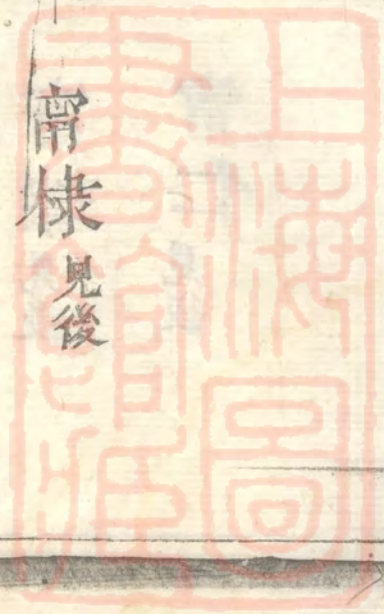 甯棣 見後
上海圖
書館藏